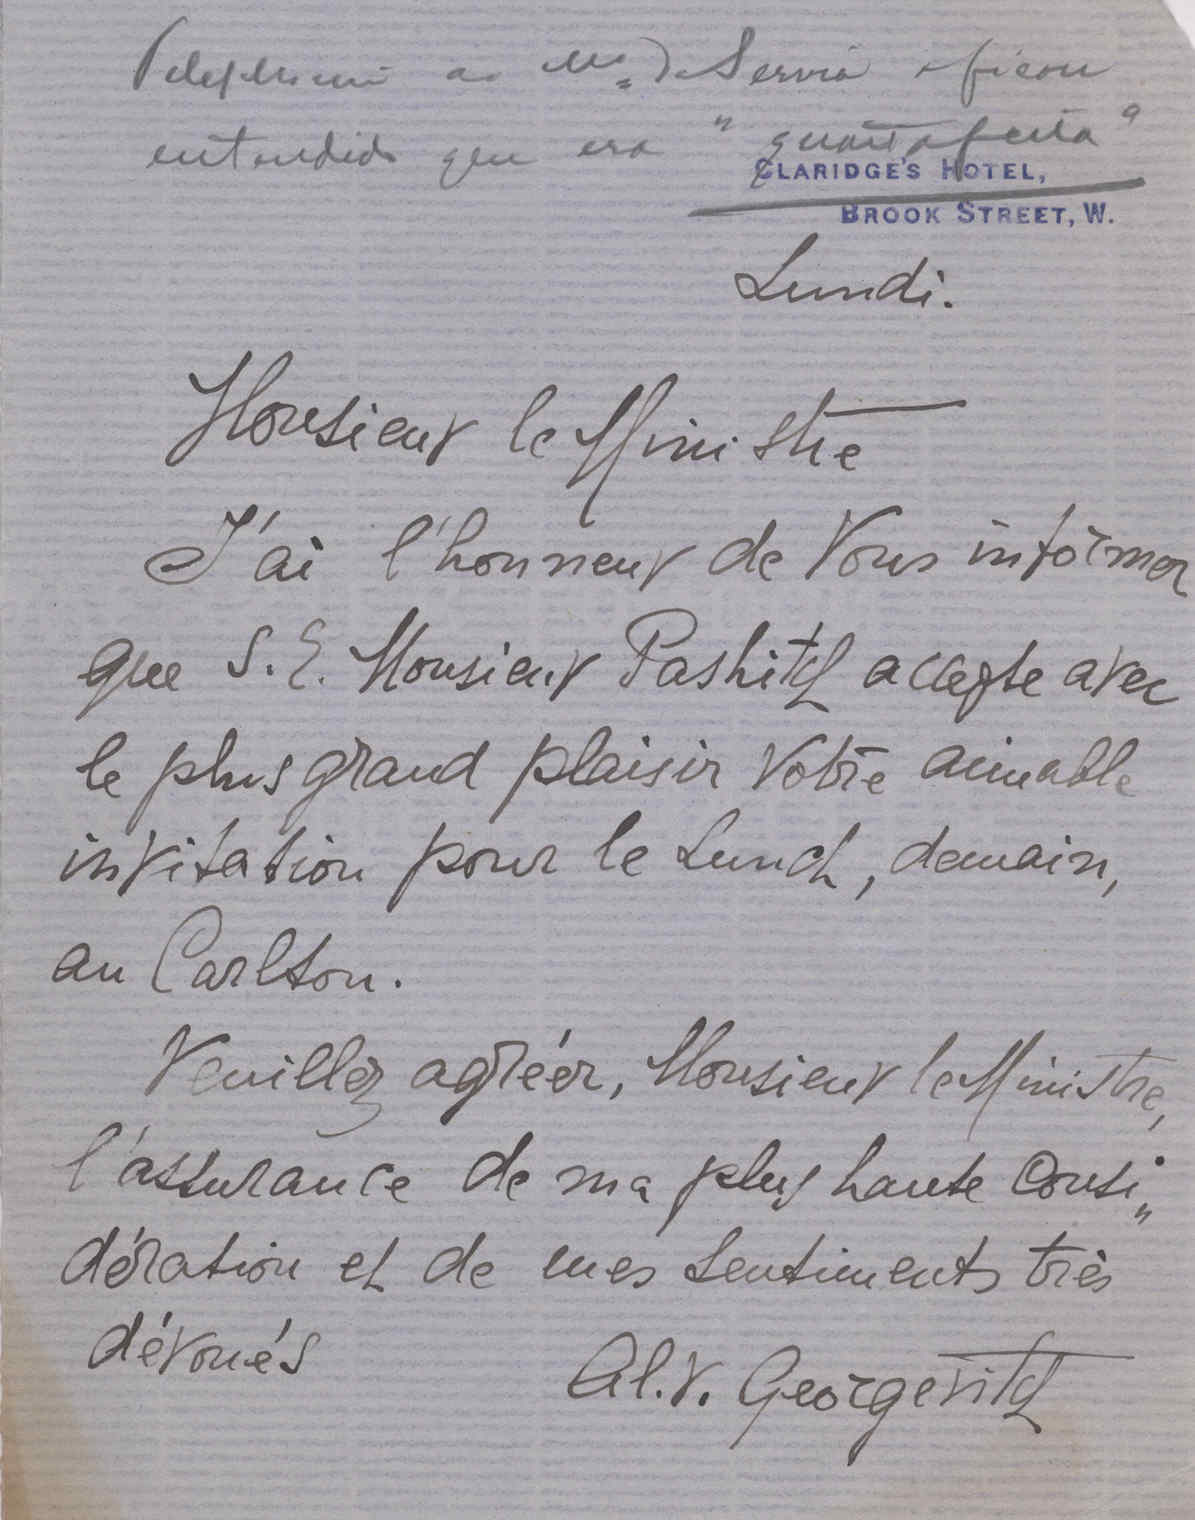 Telephonei ao Mo da Servia e ficou
entendido que era "quarta feira"
CLARIDGE'S HOTEL,
BROOK STREET, W.
Lundi.
Monsieur le Ministre
J'ai l'honneur de Vous informer
que S. E. Monsieur Pashitch accepte avec
le plus grand plaisir Votre aimable
invitation pour le Lunch, demain,
au Carlton.
Veuillez agréer, Monsieur le Ministre,
l'assurance de ma plus haute Consi„
dération et de mes sentiments très
dévoués
Al. V. Georgevitch